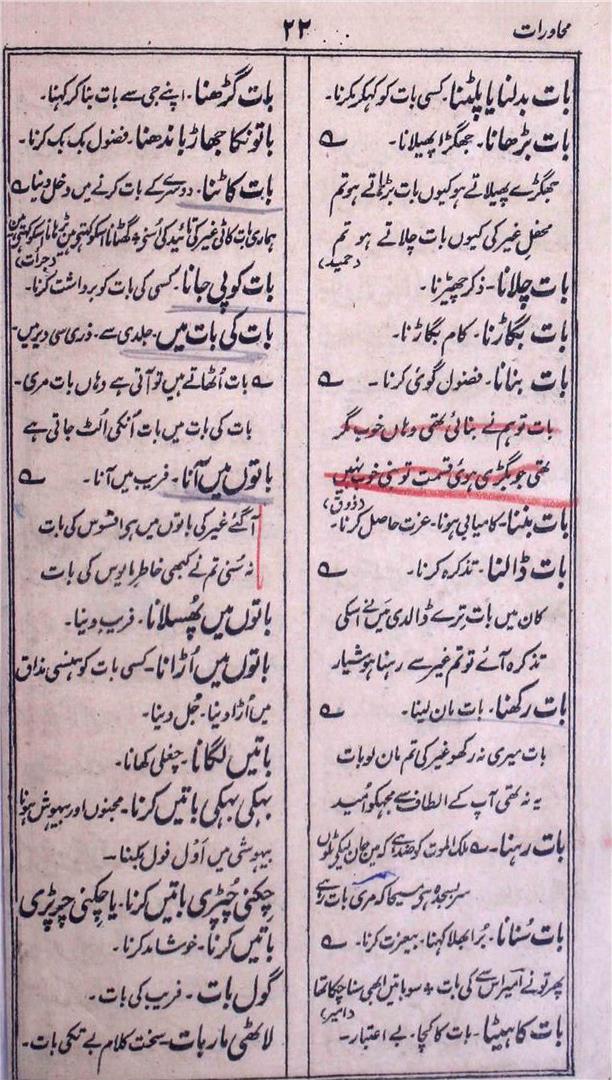 محاورات
۲۲
بات بدلنا یا پلٹنا۔ کسی بات کو کہکر مکرنا۔
بات بڑھانا۔ جھگڑا پھیلانا۔ ؎
جھگڑے پھیلاتے ہو کیوں بات بڑھاتے ہو تم
محفلِ غیر کی کیوں بات چلاتے ہو تم
(حمید)
بات چلانا۔ ذکر چھیڑنا۔
بات بگاڑنا۔ کام بگاڑنا۔
بات بنانا۔ فضول گوئی کرنا۔ ؎
بات تو ہم نے بنائی تھی وہاں خوب مگر
تھی جو بگڑی ہوئی قسمت تو بنی خوب نہیں
(ذوق)
بات بننا۔ کامیابی ہونا۔ عزت حاصل کرنا۔
بات ڈالنا۔ تذکرہ کرنا۔ ؎
کان میں بات ترے ڈالدی میں نے اسکی
تذکرہ آئے تو تم غیر سے رہنا ہوشیار
بات رکھنا۔ بات مان لینا۔ ؎
بات میری نہ رکھو غیر کی تم مان لو بات
یہ نہ تھی آپ کے الطاف سے مجہکو امید
بات رہنا۔ ؎ ملک الموت کو ضد ہے کہ میں جان لیکے ٹلوں
سر بسجدہ ہے مسیحا کہ مری بات رہے
بات سُنانا۔ بُرا بھلا کہنا۔ بیعزت کرنا۔ ؎
پھر تو نے امیر اس سے کی بات + سو باتیں ابھی سنا چکا تھا
(امیر)
بات کا ہیٹا۔ بات کا کچا۔ بے اعتبار۔
بات گڑھنا۔ اپنے جی سے بات بنا کر کہنا۔
باتونکا جھاڑ باندھنا۔ فضول بک بک کرنا۔
بات کاٹنا۔ دوسرے کے بات کرنے میں دخل دینا ؎
ہماری بات کاٹی غیر کی تائید کی سنی + گھٹانا اسکو کہتے ہیں بڑھانا اسکو کہتے ہیں
(جرات)
بات کو پی جانا۔ کسی کی بات کو برداشت کرنا۔
بات کی بات میں۔ جلدی سے۔ ذری سی دیر میں۔
؎ بات اُٹھاتے ہیں تو آتی ہے وہاں بات مری۔
بات کی بات میں بات اُنکی اُلٹ جاتی ہے
باتوں میں آنا۔ فریب میں آنا۔ ؎
آ گئے غیر کی باتوں میں ہر افسوس کی بات
نہ سُنی تم نے کبھی خاطرِ مایوس کی بات
باتوں میں پُھسلانا۔ فریب دینا۔
باتوں میں اُڑانا۔ کسی بات کو ہنسی مذاق
میں اُڑا دینا۔ جُل دینا۔
باتیں لگانا۔ چغلی کھانا۔
بہکی بہکی باتیں کرنا۔ مجنوں اور بیہوش ہونا
بیہوشی میں اَوَل فول بکنا۔
چکنی چُپڑی باتیں کرنا۔ یا چکنی چوپڑی
باتیں کرنا۔ خوشامد کرنا۔
گول بات۔ فریب کی بات۔
لاٹھی مار بات۔ سخت کلام بے تکی بات۔